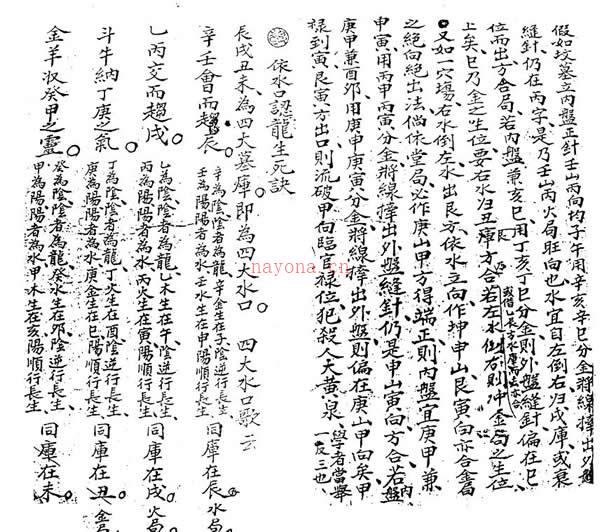 假如坟墓立內盤正針壬山丙向枃子午用辛亥辛巳分金將線擇出外盤
縫針仍在丙字是乃壬山丙火局旺向也水宜自左倒右归戌庫或衰
位而出方合局若內盤兼亥巳用丁亥丁巳分金則外盤縫針偏在巳
上矣巳乃金之生位要右水归丑庫方合若左水倒右則冲金局之生位
又如一穴塲右水倒左水出艮方依水立向作坤申山艮寅向亦合金局
之絕向絕出法倘依堂局必作庚山甲方得端正則內盤宜庚甲兼
申寅用丙甲丙寅分金將線擇出外盤縫針仍是申山寅向方合若盤內
庚甲兼酉卯用庚申庚寅分金將線擇出外盤則偏在庚山甲向矣甲
祿到寅艮寅方出口則流破甲向臨官祿位犯殺人大黃泉學者當舉一反三也
依水口認龍生死訣
辰戌丑未為四大墓庫即為四大水口 四大水口歌云
辛壬會而趨辰 辛為陰陰者為龍辛金生在子陰逆行長生 壬為陽陽者為水壬水生在申陽順行長生 同庫在辰水局
乙丙交而趨戌 乙為陰陰者為龍乙木生在午陰逆行長生 丙為陽陽者為水丙火生在寅陽順行長生 同庫在戌火局
斗牛納丁庚之氣 丁為陰陰者為龍丁火生在酉陰逆行長生 庚為陽陽者為水庚金生在巳陽順行長生 同庫在丑金局
金羊收癸甲之靈 癸為陰陰者為龍癸水生在卯陰逆行長生 甲為陽陽者為水甲木生在亥陽順行長生 同庫在未
nayona.cn